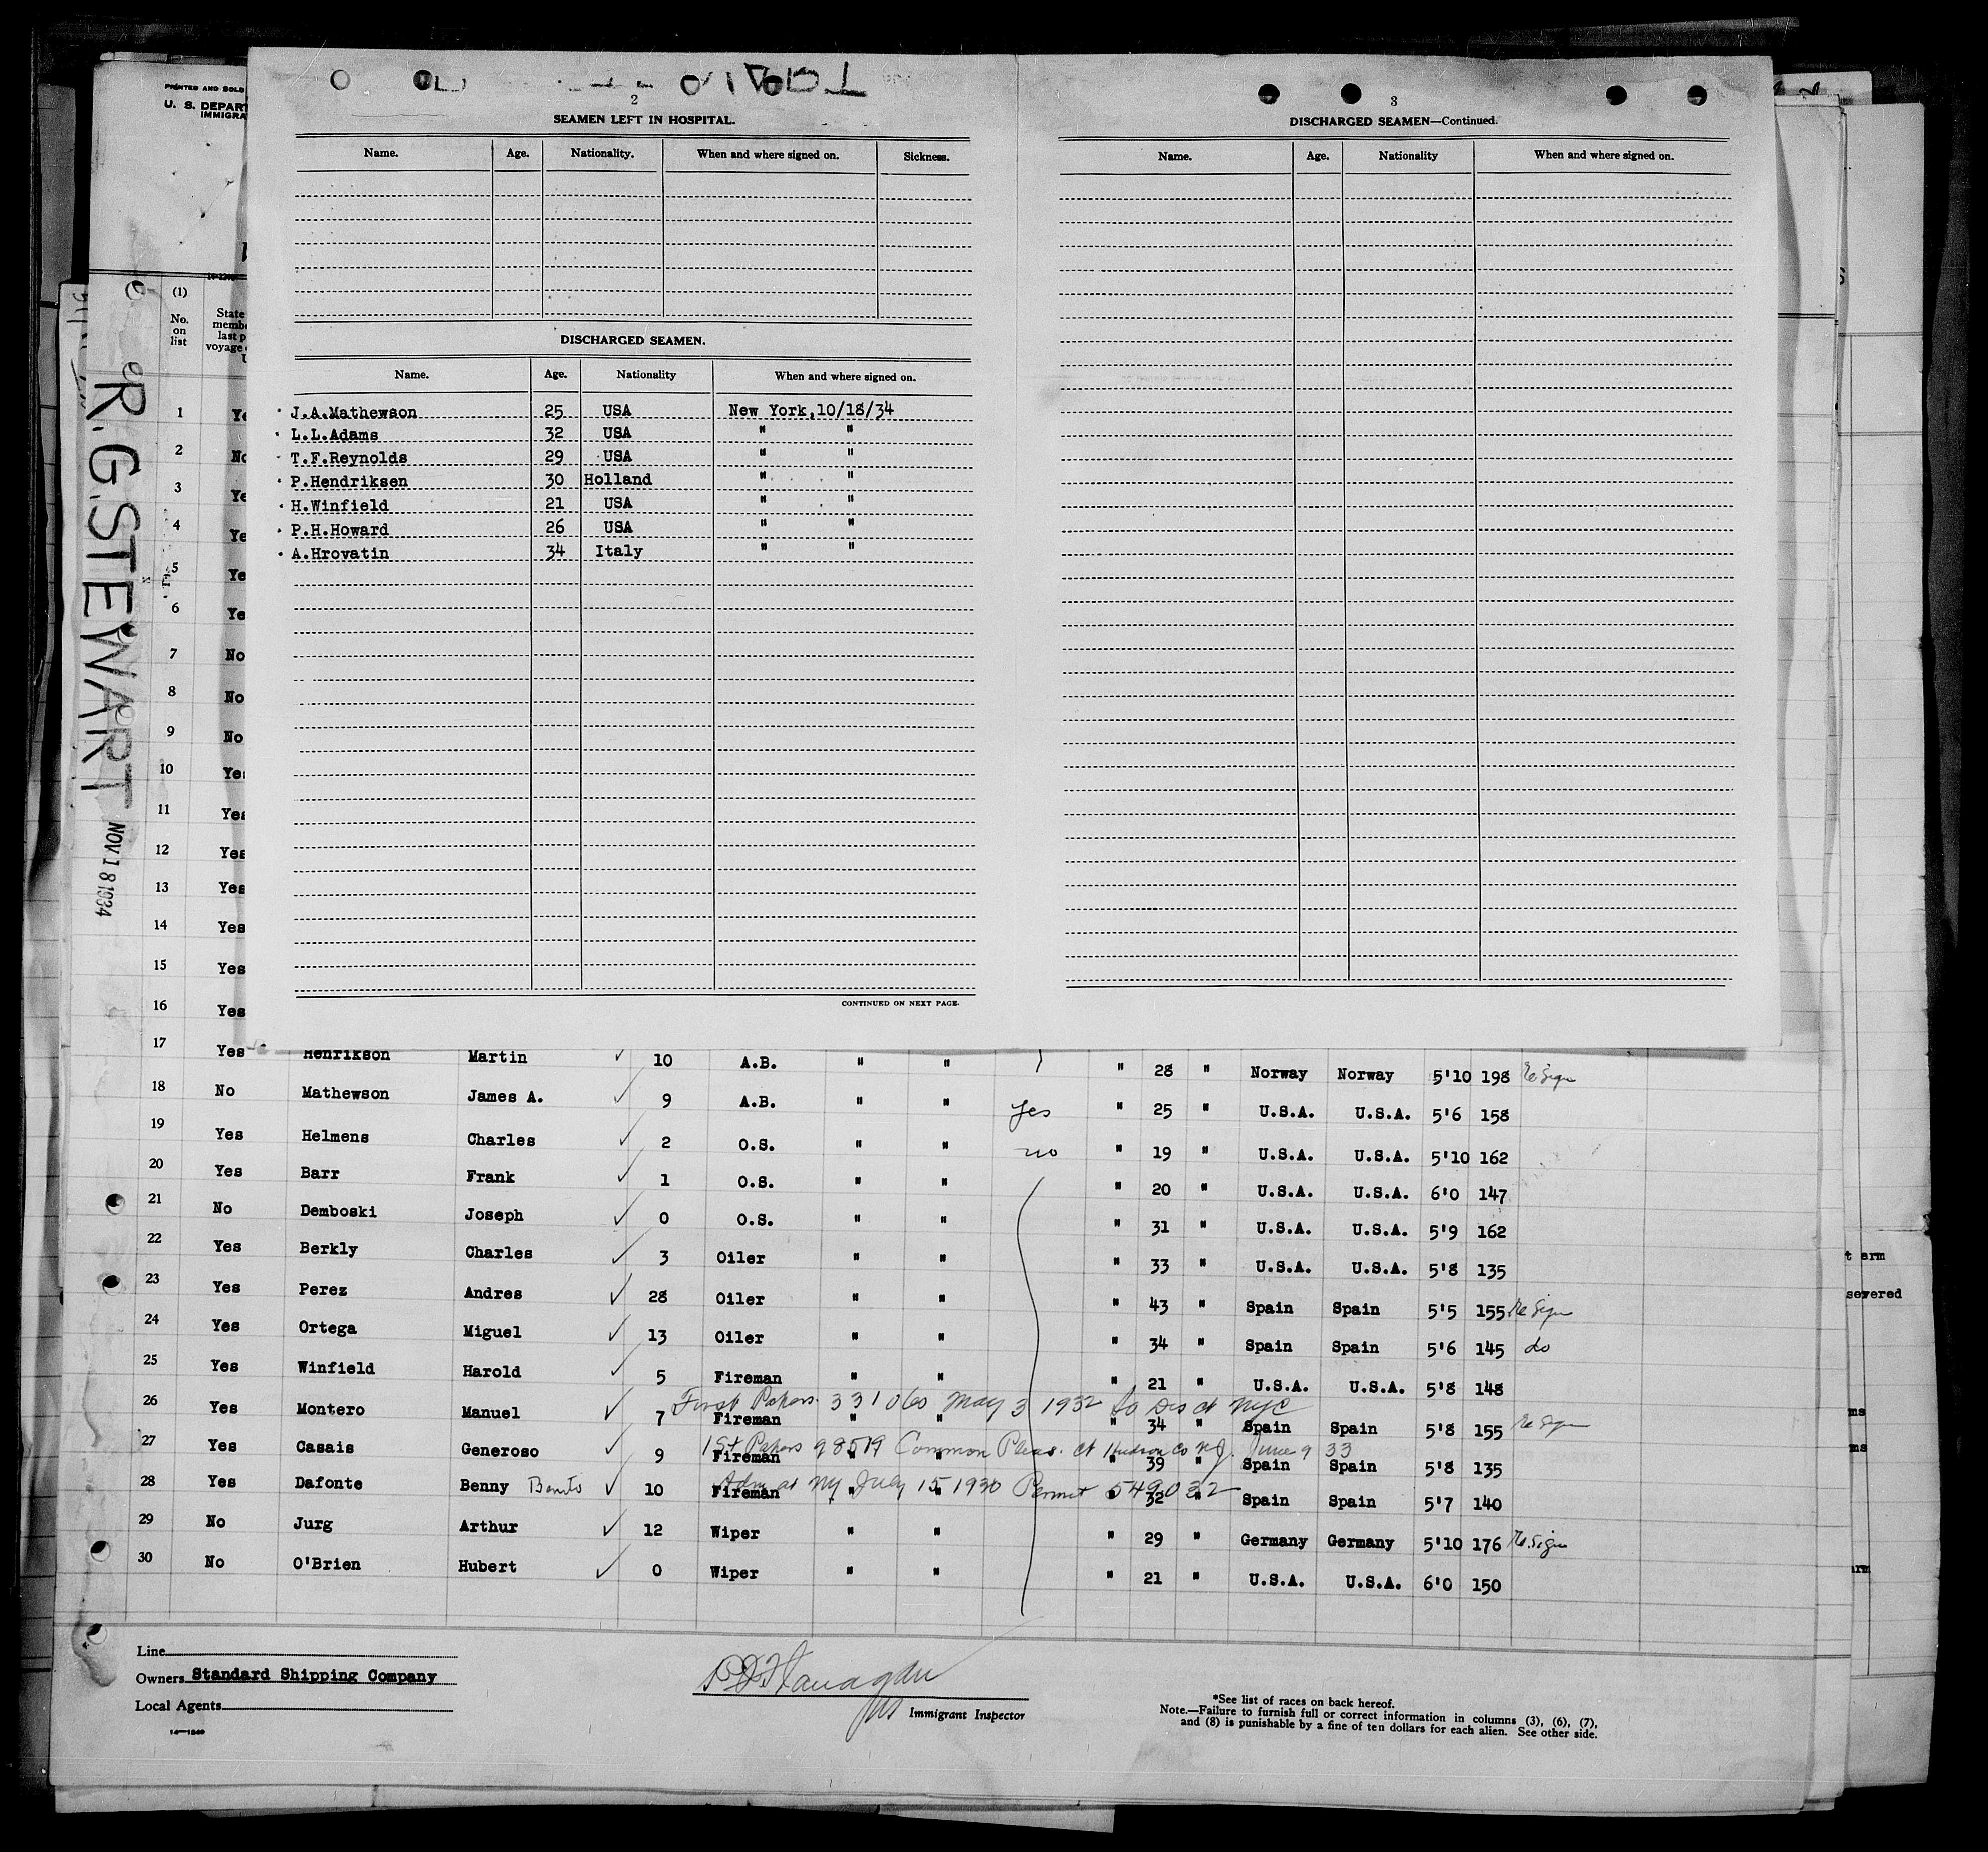 2
SEAMEN LEFT IN HOSPITAL.
Name. Age. Nationality. When and where signed on. Sickness.
DISCHARGED SEAMEN.
Name. Age. Nationality When and where signed on.
J.A.Mathewson 25 USA New York,10/18/34
L.L.Adams 32 USA " "
T.F.Reynolds 29 USA " "
P.Hendriksen 30 Holland " "
H.Winfield 21 USA " "
P.H.Howard 26 USA " "
A.Hrovatin 34 Italy " "
CONTINUED ON NEXT PAGE.
3
DISCHARGED SEAMEN—Continued.
Name. Age. Nationality When and where signed on.
PRINTED AND SOLD
U. S. DEPAR
IMMIGRA
(1)
No.
on
list
State
memb
last p
voyage
R.G.STEWART NOV 18 1934
1 Ye
2 No
3 Ye
4 Ye
5 Ye
6 Ye
7 No
8 No
9 No
10 Yes
11 Yes
12 Yes
13 Yes
14 Yes
15 Yes
16 Yes
17 Yes Henrikson Martin ✓ 10 A.B. " " " 28 " Norway Norway 5'10 198 Re Sign
18 No Mathewson James A. ✓ 9 A.B. " " Yes " 25 " U.S.A. U.S.A. 5'6 158
19 Yes Helmens Charles ✓ 2 O.S. " " no " 19 " U.S.A. U.S.A. 5'10 162
20 Yes Barr Frank ✓ 1 O.S. " " " 20 " U.S.A. U.S.A. 6'0 147
21 No Demboski Joseph ✓ 0 O.S. " " " 31 " U.S.A. U.S.A. 5'9 162
22 Yes Berkly Charles ✓ 3 Oiler " " " 33 " U.S.A. U.S.A. 5'8 135
23 Yes Perez Andres ✓ 28 Oiler " " " 43 " Spain Spain 5'5 155 Re Sign
24 Yes Ortega Miguel ✓ 13 Oiler " " " 34 " Spain Spain 5'6 145 do
25 Yes Winfield Harold ✓ 5 Fireman " " " 21 " U.S.A. U.S.A. 5'8 148
First Papers 331060 May 3 1932 So Dis ct NYC
26 Yes Montero Manuel ✓ 7 Fireman " " " 34 " Spain Spain 5'8 155 Re Sign
1st Papers 98519 Common Pleas. Ct Hudson Co NJ. June 9 33
27 Yes Casais Generoso ✓ 9 Fireman " " " 39 " Spain Spain 5'8 135
Adm at NY July 15 1930 Permit 549032
28 Yes Dafonte Benny Benito ✓ 10 Fireman " " " 32 " Spain Spain 5'7 140
29 No Jurg Arthur ✓ 12 Wiper " " " 29 " Germany Germany 5'10 176 Re.Sign
30 No O'Brien Hubert ✓ 0 Wiper " " " 21 " U.S.A. U.S.A. 6'0 150
t arm
severed
ms
ms
arm
Line
Owners Standard Shipping Company
Local Agents
14—1240
Flanagan
Immigrant Inspector
*See list of races on back hereof.
Note.—Failure to furnish full or correct information in columns (3), (6), (7),
and (8) is punishable by a fine of ten dollars for each alien. See other side.